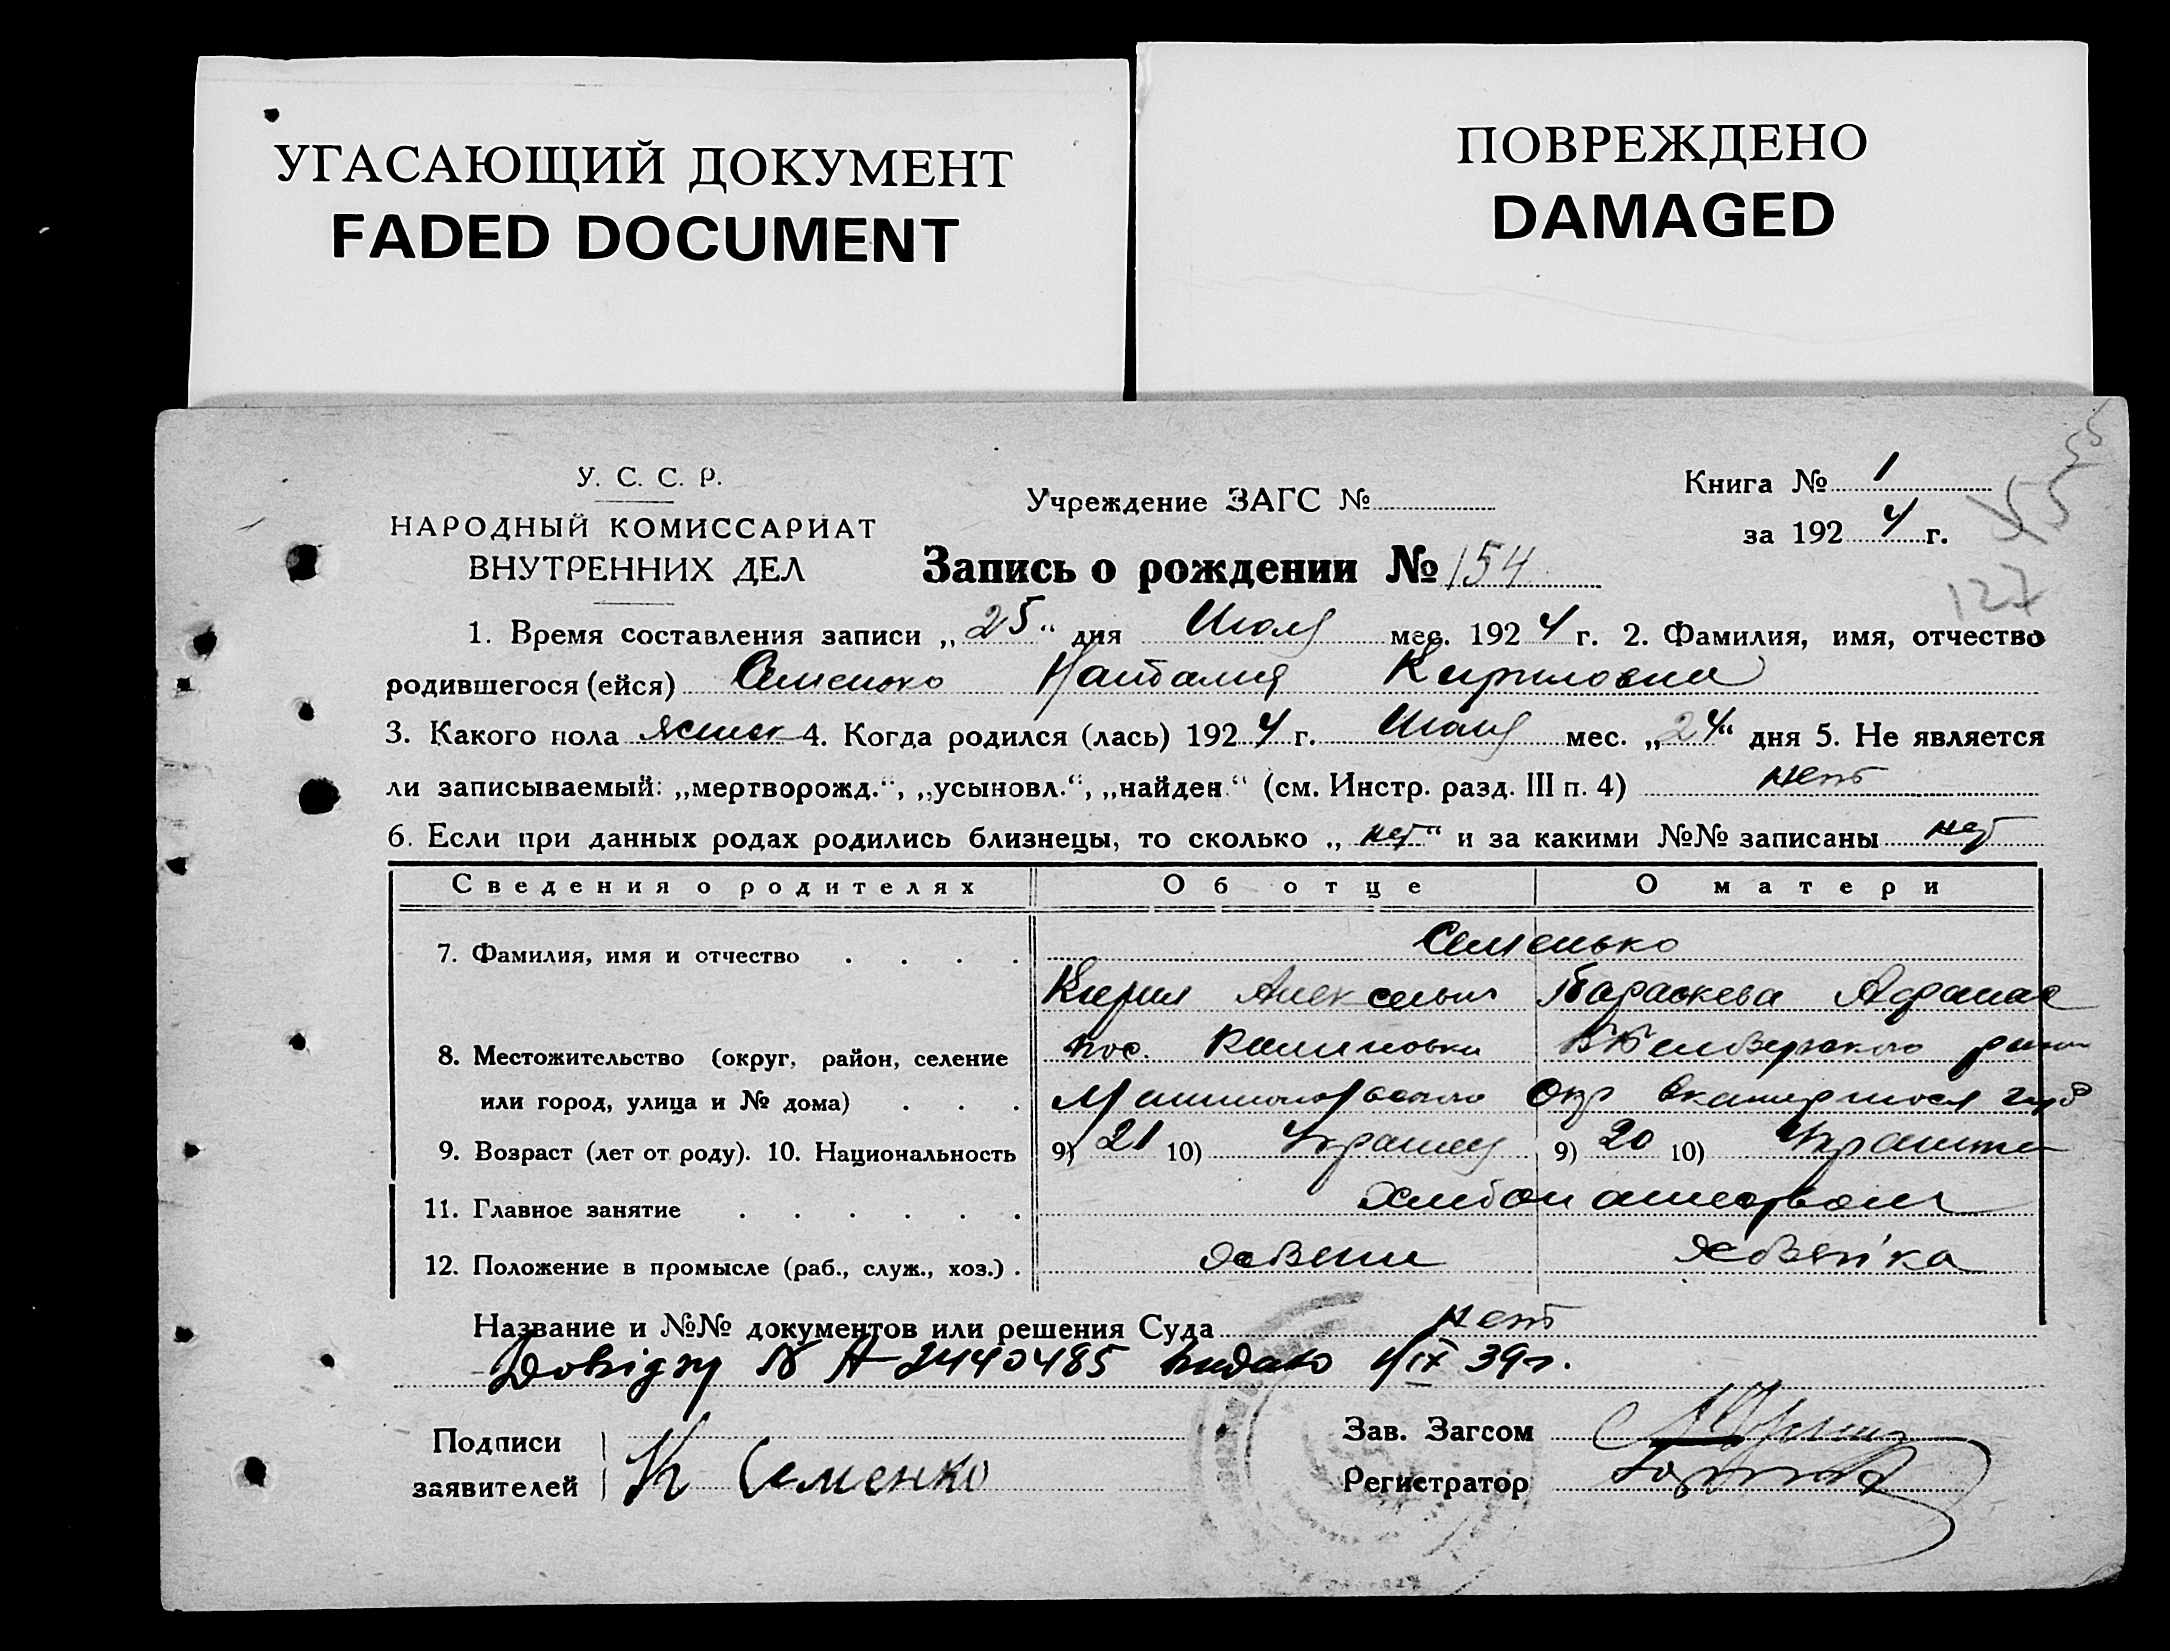 УГАСАЮЩИЙ ДОКУМЕНТ
FADED DOCUMENT
ПОВРЕЖДЕНО
DAMAGED
У. С. С. Р.
НАРОДНЫЙ КОМИССАРИАТ
ВНУТРЕННИХ ДЕЛ
Учреждение ЗАГС №
Книга № 1
за 1924 г.
55
127
Запись о рождении № 154
1. Время составления записи „25“ дня Июля мес. 1924 г. 2. Фамилия, имя, отчество
родившегося (ейся) Семенько Наталия Кириловна
3. Какого пола женск 4. Когда родился (лась) 1924 г. Июля мес. „24“ дня 5. Не является
ли записываемый: „мертворожд.“, „усыновл.“, „найден.“ (см. Инстр. разд. III п. 4) нет
6. Если при данных родах родились близнецы, то сколько „нет“ и за какими №№ записаны нет
Сведения о родителях Об отце О матери
7. Фамилия, имя и отчество Семенько
Кирил Алексеевич Параскева Афанас
8. Местожительство (округ, район, селение пос. Калиновка
или город, улица и № дома) Окр Екатериносл губ
9. Возраст (лет от роду). 10. Национальность 9) 21 10) Украинец 9) 20 10)
11. Главное занятие
12. Положение в промысле (раб., служ., хоз.)
Название и №№ документов или решения Суда нет
№ А-2440485 видано IX 39г.
Подписи
заявителей К Семенко
Зав. Загсом
Регистратор